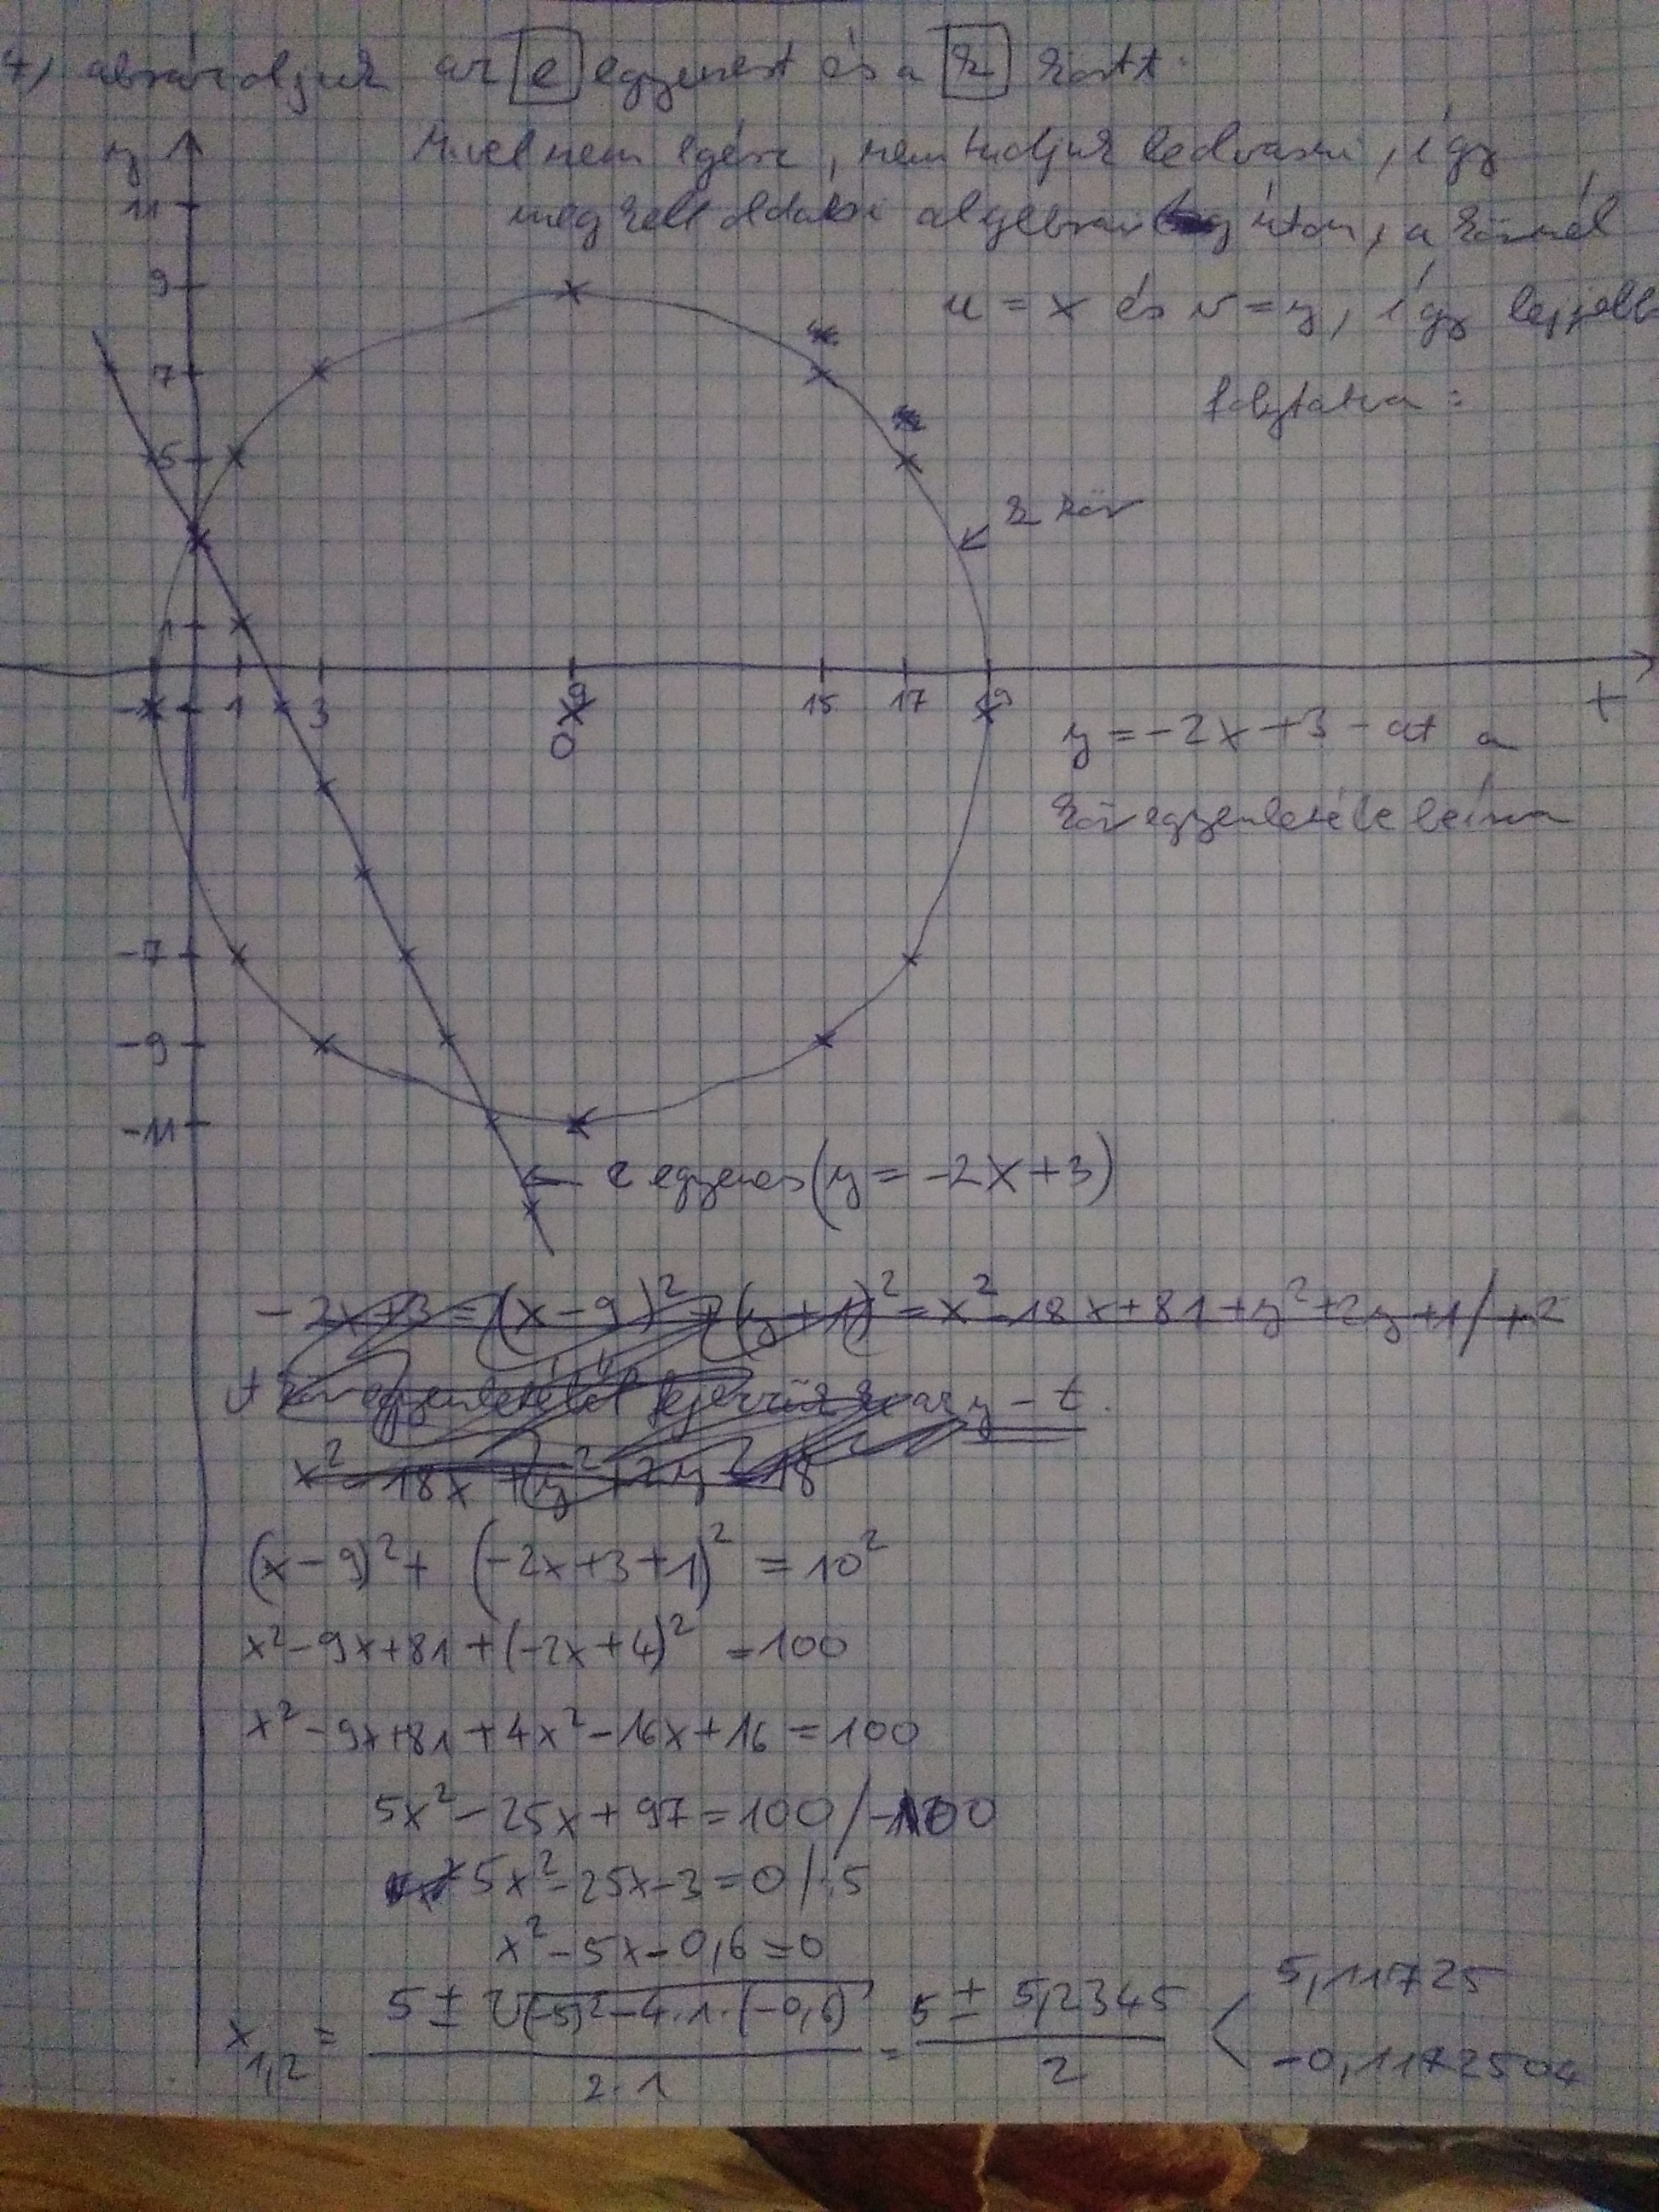 4, ábrázoljuk az e egyenest és a k kört.
Mivel nem egész, nem tudjuk leolvasni, így
meg kell oldani algebrai úton, a körnél
u = x és v = y, így lejjebb
folytatva:
y
11
9
7
5
k kör
1
-1 1 3 9 15 17 19 x
O
y = -2x+3 -at a
kör egyenletébe beírva
-7
-9
-11
e egyenes (y = -2x+3)
-2x+3 = (x-9)²+(y+1)² = x²-18x+81+y²+2y+1/+2
A kör egyenletéből fejezzük ki az y-t.
x²-18x+y²+2y=18
(x-9)²+ (-2x+3+1)² = 10²
x²-9x+81+(-2x+4)² =100
x²-9x+81+4x²-16x+16=100
5x²-25x+97=100/-100
5x²-25x-3=0/:5
x²-5x-0,6=0
x1,2 = 5±√(-5)²-4·1·(-0,6) / 2·1 = 5± 5,2345 / 2 < 5,11725
-0,1172504